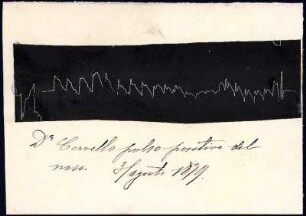 Dr Cervello polso positivo del
naso. 3 agosto 1879.